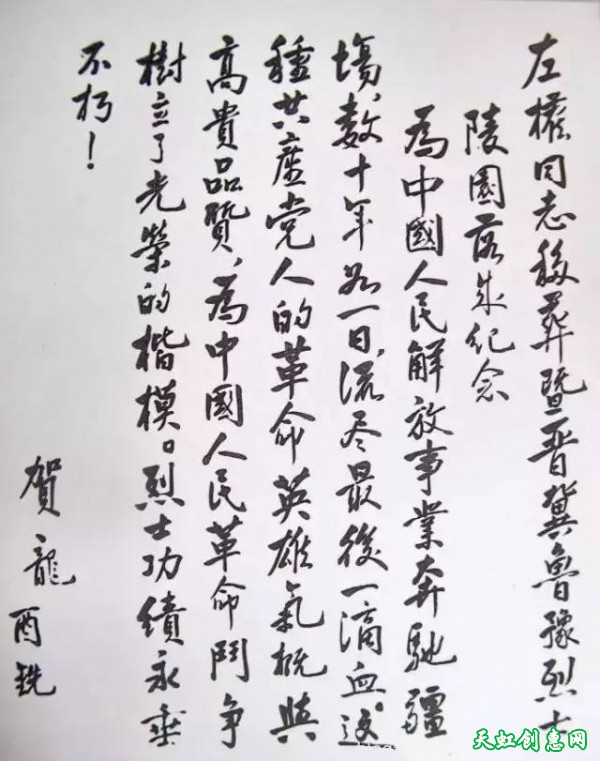 左權同志移葬暨晋冀魯豫烈士
陵園落成纪念
為中國人民解放事業奔馳疆
場，數十年如一日，流尽最後一滴血。这
種共産党人的革命英雄氣概與
高貴品質，為中國人民革命鬥争
樹立了光榮的楷模。烈士功績永垂
不朽！
賀龍 酉銑
天虹创惠网